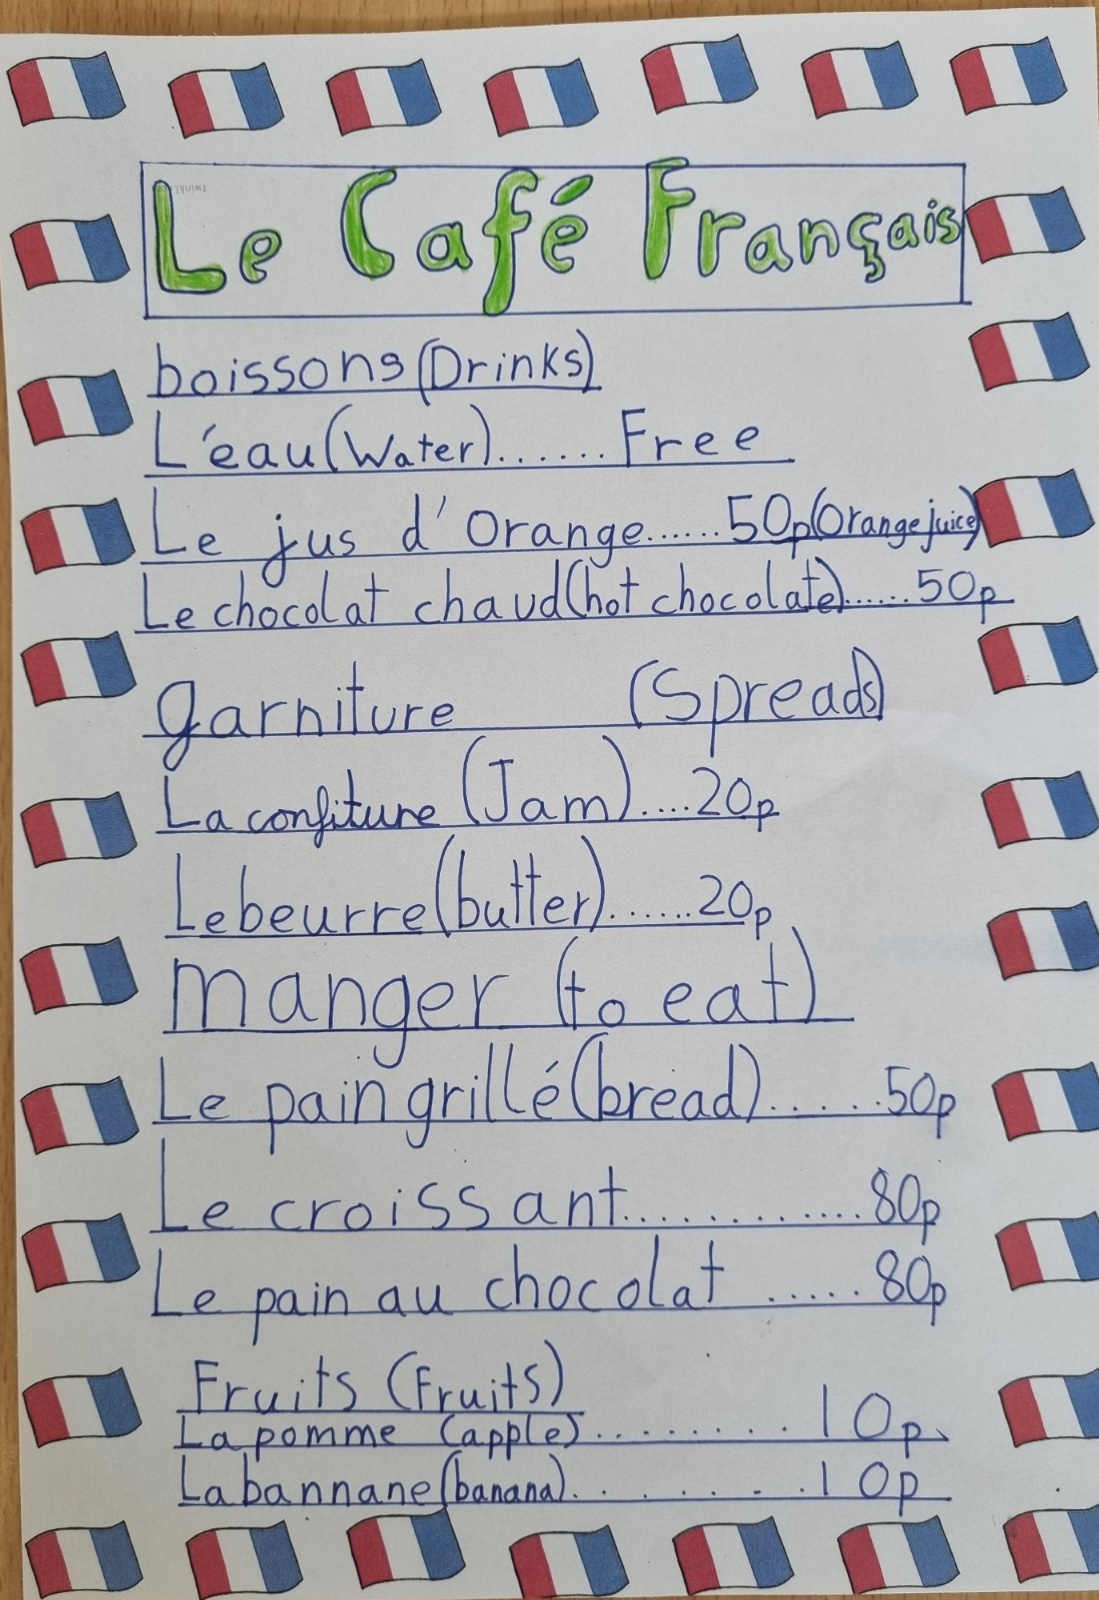 Le Café Français
boissons (Drinks)
L'eau (Water)......Free
Le jus d'Orange......50p (Orange juice)
Le chocolat chaud (hot chocolate)......50p
garniture (Spreads)
La confiture (Jam)....20p
Le beurre (butter)......20p
manger (to eat)
Le pain grillé (bread)......50p
Le croissant.............80p
Le pain au chocolat .....80p
Fruits (Fruits)
La pomme (apple).........10p
La bannane (banana)........10p